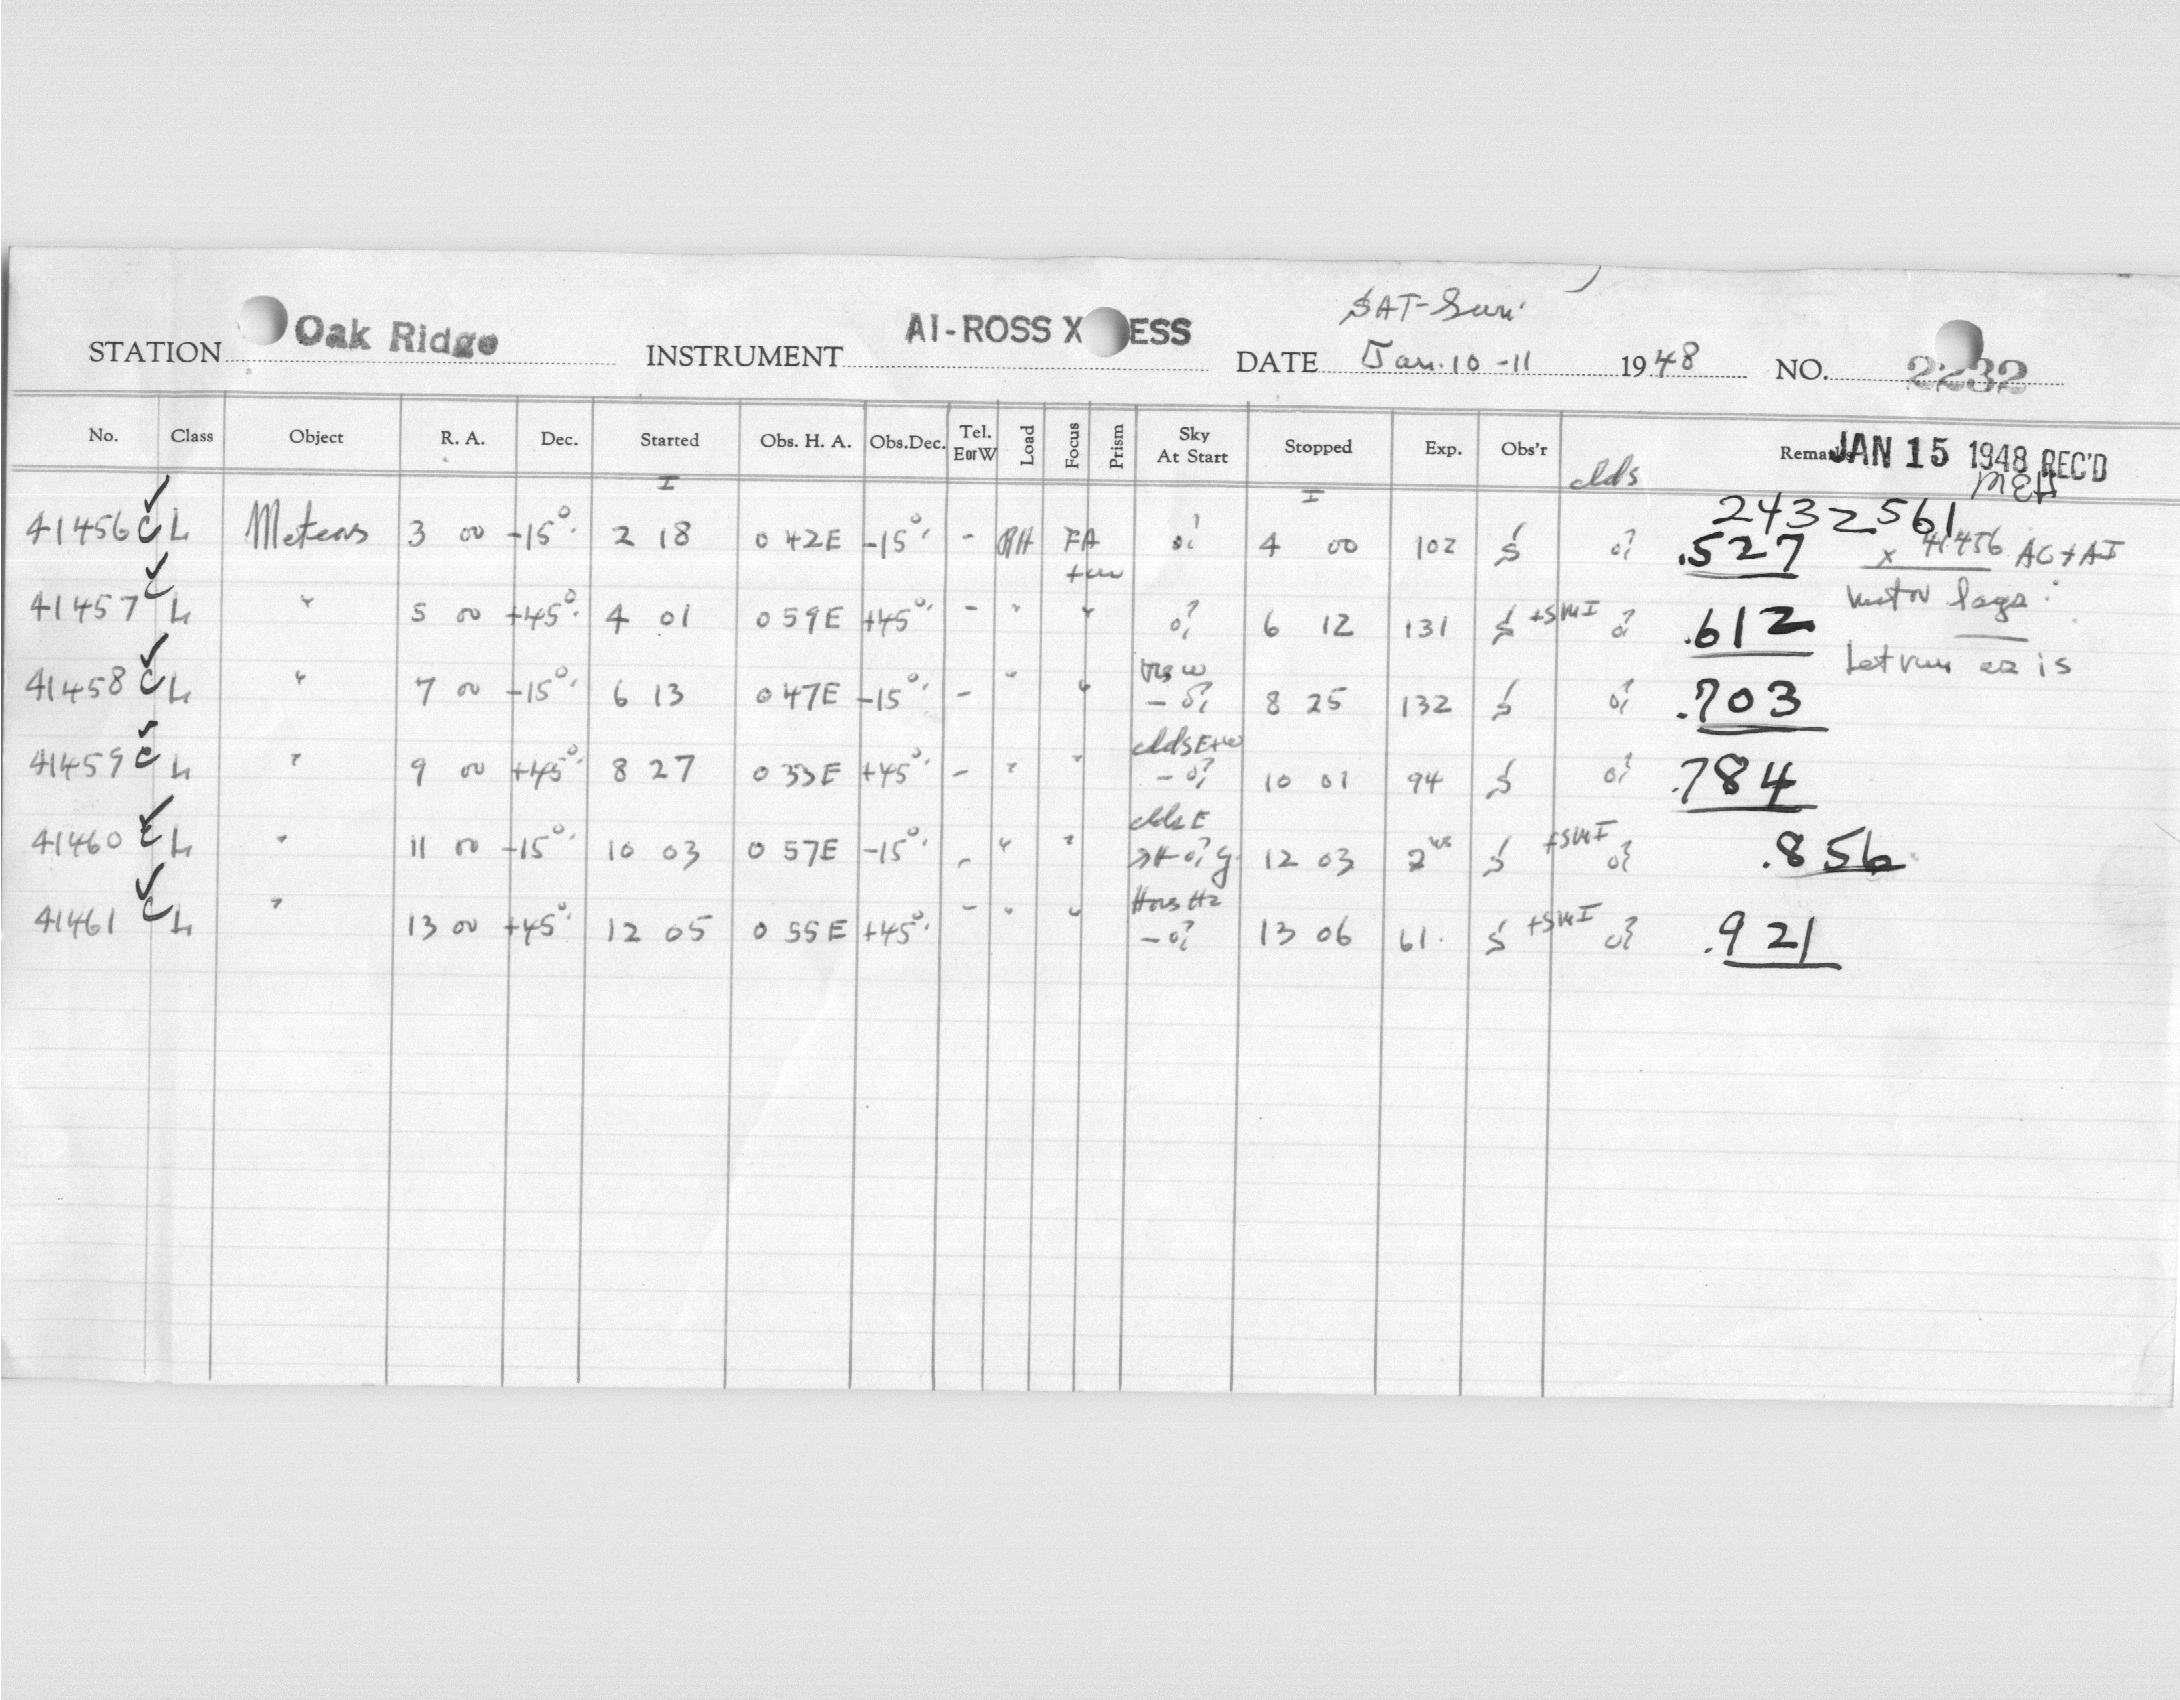 SAT-Sun.
STATION Oak Ridge INSTRUMENT AI-ROSS X ESS DATE Jan. 10-11 1948 NO. 2232
No. Class Object R. A. Dec. Started Obs. H. A. Obs.Dec. Tel. EorW Load Focus Prism Sky At Start Stopped Exp. Obs'r Remarks JAN 15 1948 REC'D
I I clds MEH
2432561
41456 C L Meteors 3 00 -15° 2 18 0 42E -15° - RH FA 4 00 102 S .527 x 41456 AC + AI
41457 C L " 5 00 +45° 4 01 0 59E +45° - " " 6 12 131 S +SMI .612 motor lags:
41458 C L " 7 00 -15° 6 13 0 47E -15° - " " 8 25 132 S .703 Let run as is
clds E+W
41459 C L " 9 00 +45° 8 27 0 33E +45° - " " 10 01 94 S .784
clds E
41460 C L " 11 00 -15° 10 03 0 57E -15° - " " 12 03 S +SMI .856
41461 C L " 13 00 +45° 12 05 0 55E +45° - " " 13 06 61. S +SMI .921